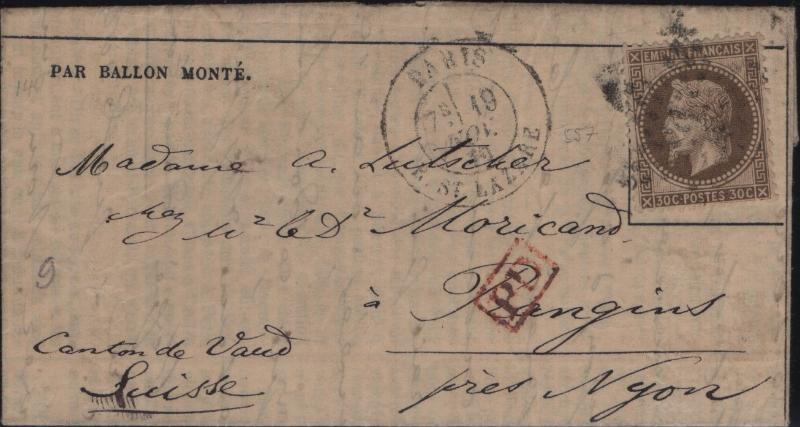 PAR BALLON MONTÉ.
PARIS
7E 19
NOV.
R. ST LAZARE
EMPIRE FRANÇAIS
30C·POSTES·30C
557
Madame A. Lutscher
chez Mr le Dr Moricand
PD
à Prangins
9
Canton de Vaud
Suisse
près Nyon